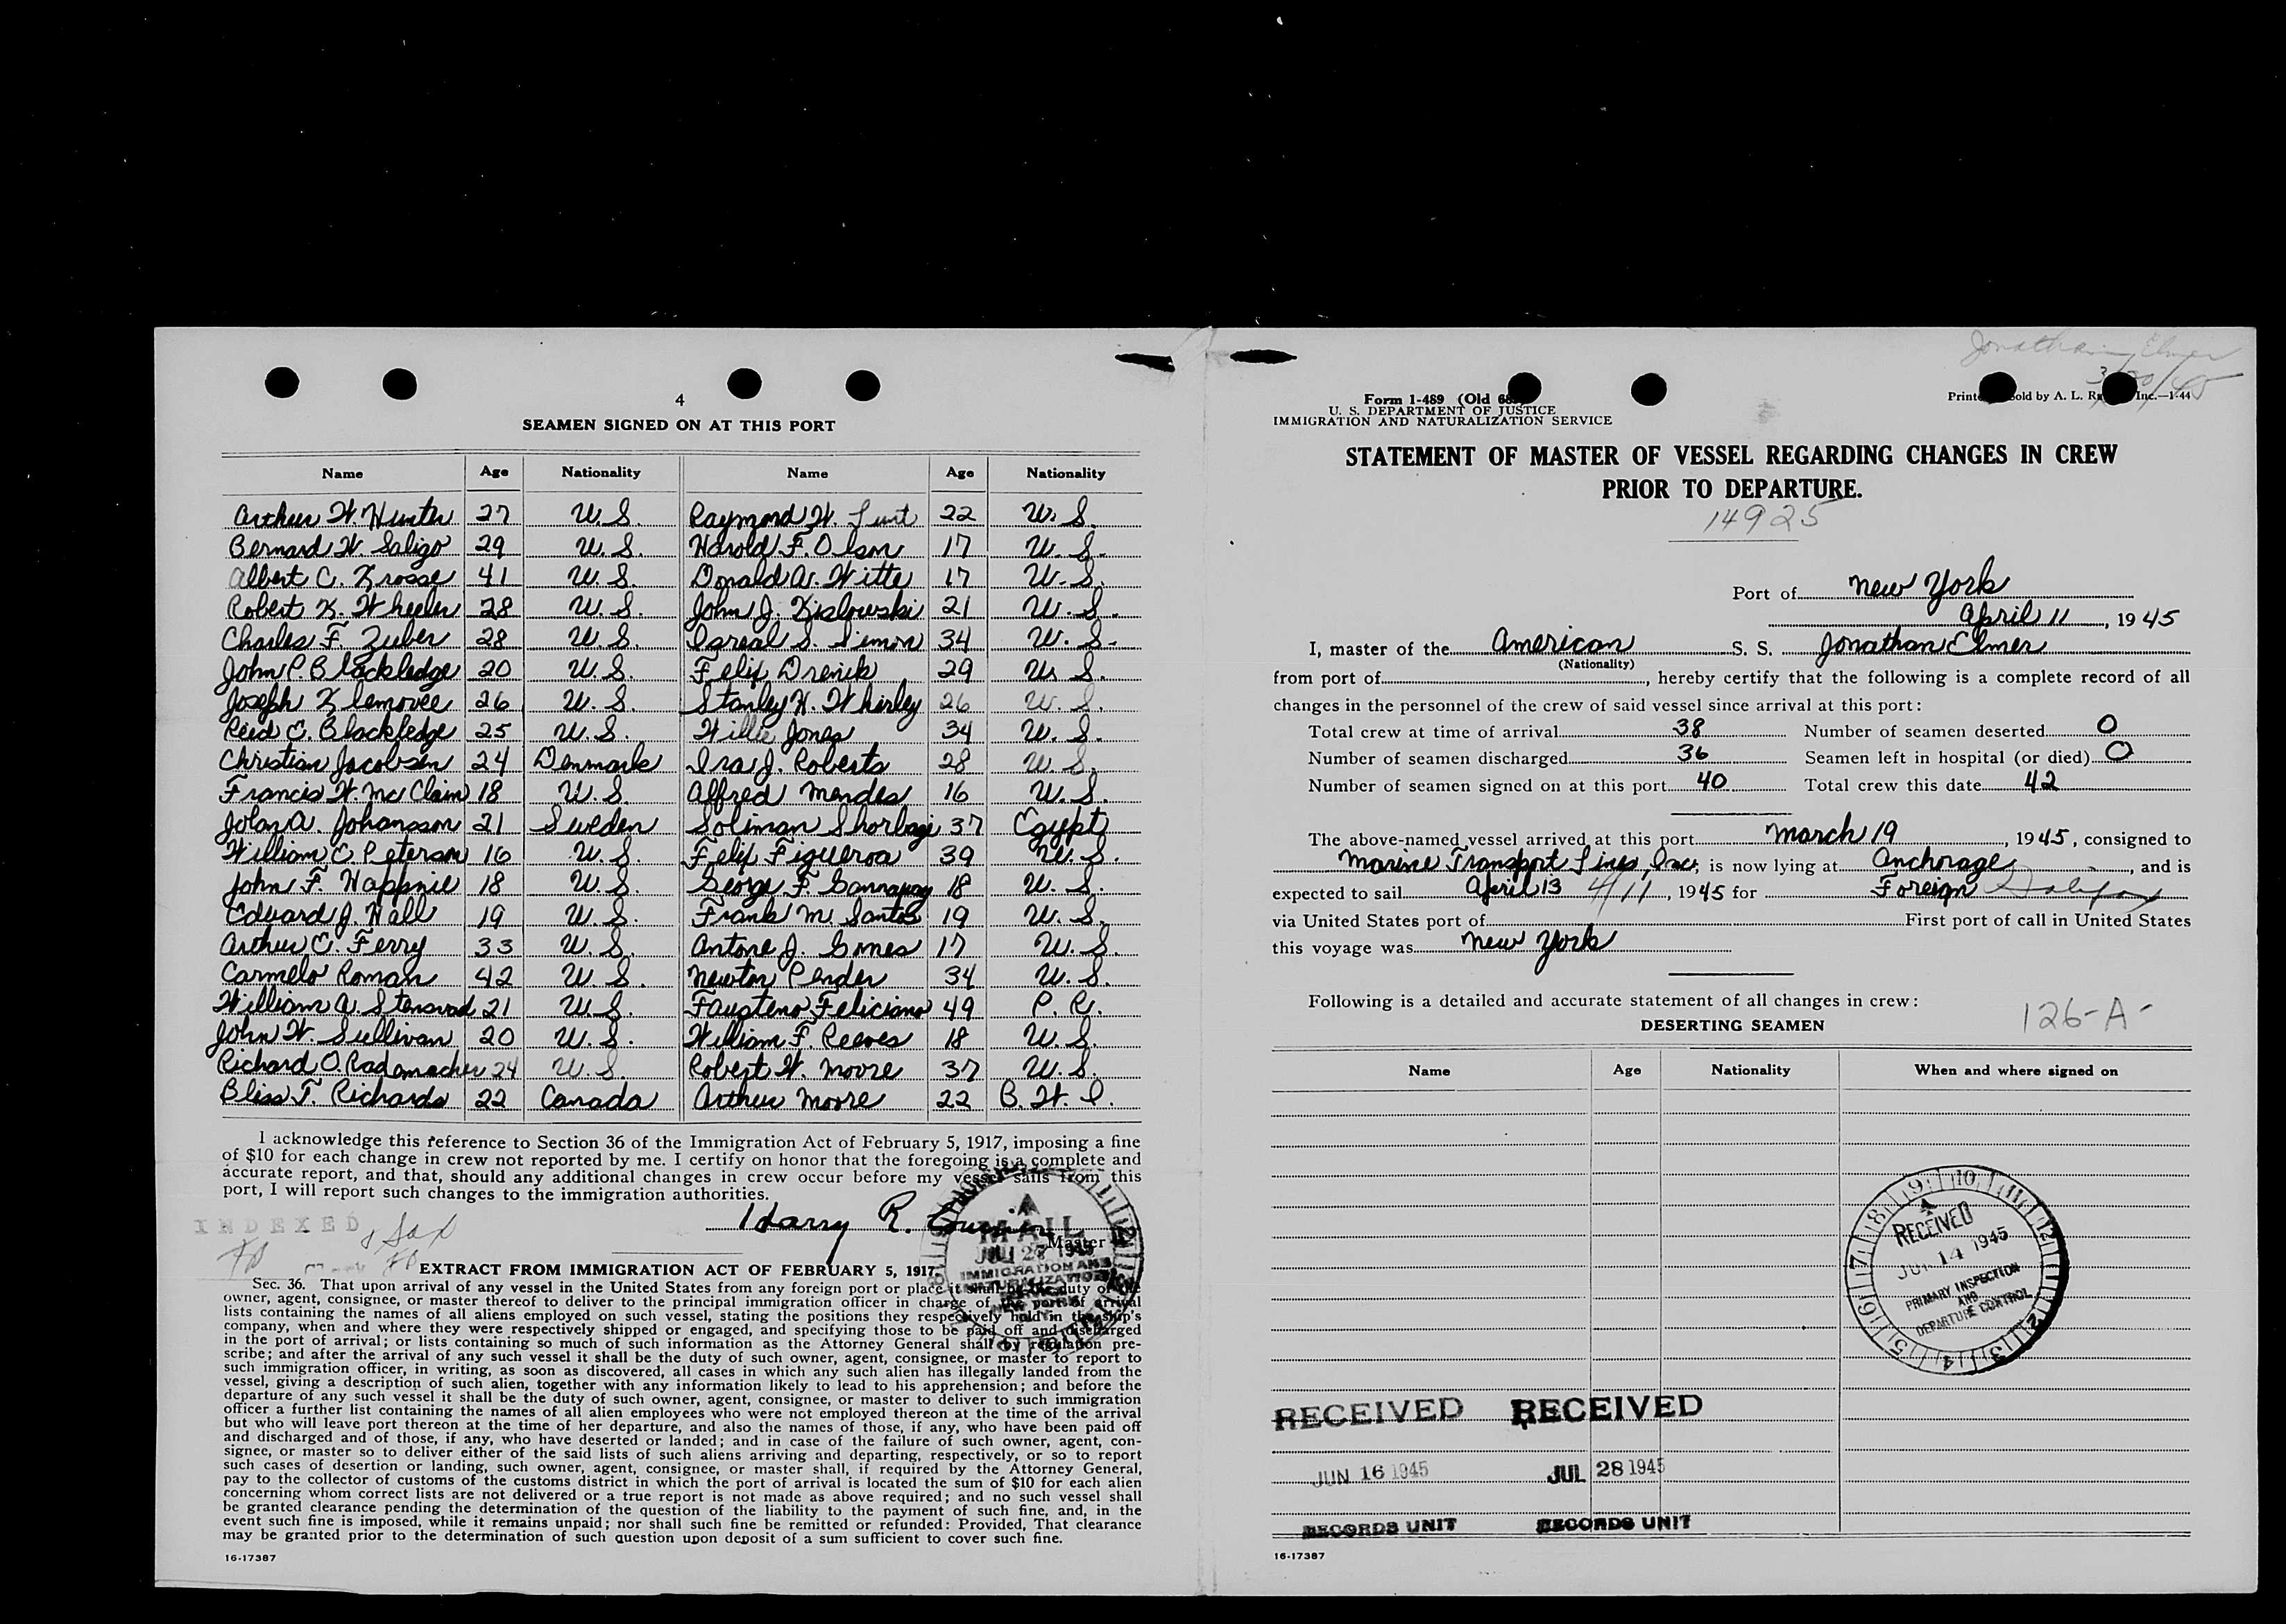 4
SEAMEN SIGNED ON AT THIS PORT
Name Age Nationality Name Age Nationality
Arthur W. Hunter 27 U.S. Raymond W. Lunt 22 U.S.
Bernard W. Saligo 29 U.S. Harold F. Olson 17 U.S.
Albert C. Krosse 41 U.S. Donald A. Witte 17 U.S.
Robert K. Wheeler 28 U.S. John J. Kislowski 21 U.S.
Charles F. Zuber 28 U.S. Isreal S. Simon 34 U.S.
John P. Blackledge 20 U.S. Felix Drenik 29 U.S.
Joseph Klemovec 26 U.S. Stanley H. Wherley 26 U.S.
Reid C. Blackledge 25 U.S. Willie Jones 34 U.S.
Christian Jacobsen 24 Denmark Ira J. Roberts 28 U.S.
Francis W. McClain 18 U.S. Alfred Mendes 16 U.S.
A. Johansson 21 Sweden Soliman Shorbagi 37 Egypt
William C. Peterson 16 U.S. Felix Figueroa 39 U.S.
John F. Wappnie 18 U.S. George F. Gannaway 18 U.S.
Edward J. Hall 19 U.S. Frank M. Santos 19 U.S.
Arthur C. Ferry 33 U.S. Antone J. Gomes 17 U.S.
Carmelo Roman 42 U.S. Newton Pender 34 U.S.
William A. Stensvad 21 U.S. Fausteno Feliciano 49 P.R.
John W. Sullivan 20 U.S. William F. Reeves 18 U.S.
Richard O. Rademacher 24 U.S. Robert W. Moore 37 U.S.
Bliss T. Richards 22 Canada Arthur Moore 22 B.W.I.
I acknowledge this reference to Section 36 of the Immigration Act of February 5, 1917, imposing a fine
of $10 for each change in crew not reported by me. I certify on honor that the foregoing is a complete and
accurate report, and that, should any additional changes in crew occur before my vessel sails from this
port, I will report such changes to the immigration authorities.
INDEXED
Harry R.
Master
MAIL
JUL 27 1945
IMMIGRATION AND
NATURALIZATION
EXTRACT FROM IMMIGRATION ACT OF FEBRUARY 5, 1917
Sec. 36. That upon arrival of any vessel in the United States from any foreign port or place it shall be the duty of the
owner, agent, consignee, or master thereof to deliver to the principal immigration officer in charge of the port of arrival
lists containing the names of all aliens employed on such vessel, stating the positions they respectively hold in the ship's
company, when and where they were respectively shipped or engaged, and specifying those to be paid off and discharged
in the port of arrival; or lists containing so much of such information as the Attorney General shall by regulation pre-
scribe; and after the arrival of any such vessel it shall be the duty of such owner, agent, consignee, or master to report to
such immigration officer, in writing, as soon as discovered, all cases in which any such alien has illegally landed from the
vessel, giving a description of such alien, together with any information likely to lead to his apprehension; and before the
departure of any such vessel it shall be the duty of such owner, agent, consignee, or master to deliver to such immigration
officer a further list containing the names of all alien employees who were not employed thereon at the time of the arrival
but who will leave port thereon at the time of her departure, and also the names of those, if any, who have been paid off
and discharged and of those, if any, who have deserted or landed; and in case of the failure of such owner, agent, con-
signee, or master so to deliver either of the said lists of such aliens arriving and departing, respectively, or so to report
such cases of desertion or landing, such owner, agent, consignee, or master shall, if required by the Attorney General,
pay to the collector of customs of the customs district in which the port of arrival is located the sum of $10 for each alien
concerning whom correct lists are not delivered or a true report is not made as above required; and no such vessel shall
be granted clearance pending the determination of the question of the liability to the payment of such fine, and, in the
event such fine is imposed, while it remains unpaid; nor shall such fine be remitted or refunded: Provided, That clearance
may be granted prior to the determination of such question upon deposit of a sum sufficient to cover such fine.
16-17387
Jonathan Elmer
3/20/45
Form 1-489 (Old 68
U. S. DEPARTMENT OF JUSTICE
IMMIGRATION AND NATURALIZATION SERVICE
Printe old by A. L. R Inc.—1-44
STATEMENT OF MASTER OF VESSEL REGARDING CHANGES IN CREW
PRIOR TO DEPARTURE.
14925
Port of New York
April 11, 1945
I, master of the American S. S. Jonathan Elmer
(Nationality)
from port of , hereby certify that the following is a complete record of all
changes in the personnel of the crew of said vessel since arrival at this port:
Total crew at time of arrival 38 Number of seamen deserted 0
Number of seamen discharged 36 Seamen left in hospital (or died) 0
Number of seamen signed on at this port 40 Total crew this date 42
The above-named vessel arrived at this port March 19, 1945, consigned to
Marine Transport Lines, Inc, is now lying at Anchorage, and is
expected to sail April 13 4/11, 1945 for Foreign Halifax
via United States port of First port of call in United States
this voyage was New York
Following is a detailed and accurate statement of all changes in crew:
DESERTING SEAMEN
126-A-
Name Age Nationality When and where signed on
RECEIVED
14 1945
PRIMARY INSPECTION
AND
DEPARTURE CONTROL
RECEIVED RECEIVED
JUN 16 1945 JUL 28 1945
RECORDS UNIT RECORDS UNIT
16-17387